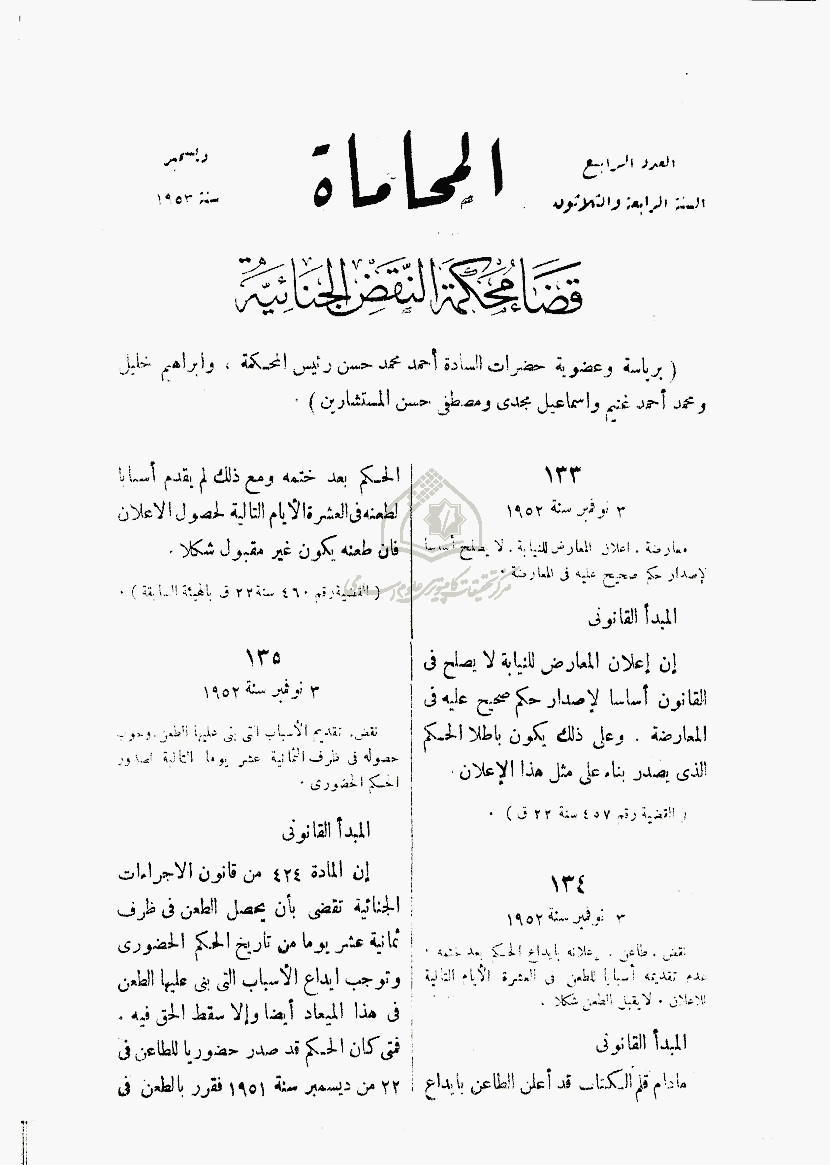 العدد الرابع
السنة الرابعة والثلاثون
المحاماة
ديسمبر
سنة ١٩٥٣
قضاء محكمة النقض الجنائية
( برياسة وعضوية حضرات السادة أحمد محمد حسن رئيس المحكمة ، وابراهيم خليل
ومحمد أحمد غنيم واسماعيل مجدى ومصطفى حسن المستشارين ) .
١٣٣
٣ نوفمبر سنة ١٩٥٢
معارضة . اعلان المعارض للنيابة . لا يصلح أساسا
لإصدار حكم صحيح عليه فى المعارضة .
المبدأ القانونى
إن إعلان المعارض للنيابة لا يصلح فى
القانون أساسا لإصدار حكم صحيح عليه فى
المعارضة . وعلى ذلك يكون باطلا الحكم
الذى يصدر بناء على مثل هذا الإعلان .
( القضية رقم ٤٥٧ سنة ٢٢ ق ) .
١٣٤
٣ نوفمبر سنة ١٩٥٢
نقض . طاعن . إعلانه بايداع الحكم بعد ختمه .
عدم تقديمه أسبابا للطعن فى العشرة الأيام التالية
للاعلان . لا يقبل الطعن شكلا .
المبدأ القانونى
مادام قلم الكتاب قد أعلن الطاعن بايداع
الحكم بعد ختمه ومع ذلك لم يقدم أسبابا
لطعنه فى العشرة الأيام التالية لحصول الاعلان
فان طعنه يكون غير مقبول شكلا .
( القضية رقم ٤٦٠ سنة ٢٢ ق بالهيئة السابقة ) .
١٣٥
٣ نوفمبر سنة ١٩٥٢
نقض . تقديم الأسباب التى بنى عليها الطعن . وجوب
حصوله فى ظرف الثمانية عشر يوما التالية لصدور
الحكم الحضورى .
المبدأ القانونى
إن المادة ٤٢٤ من قانون الاجراءات
الجنائية تقضى بأن يحصل الطعن فى ظرف
ثمانية عشر يوما من تاريخ الحكم الحضورى
وتوجب ايداع الأسباب التى بنى عليها الطعن
فى هذا الميعاد أيضا وإلا سقط الحق فيه .
فمتى كان الحكم قد صدر حضوريا للطاعن فى
٢٢ من ديسمبر سنة ١٩٥١ فقرر بالطعن فى
مركز تحقيقات كامپيوترى علوم اسلامى